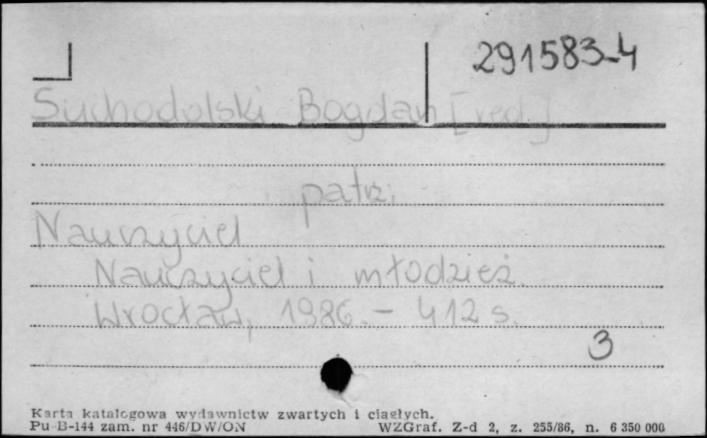 291583-4
Suchodolski Bogdan [red.]
patrz:
Nauczyciel
Nauczyciel i młodzież.
Wrocław, 1986. - 412 s.
3
Karta katalogowa wydawnictw zwartych i ciągłych.
Pu B-144 zam. nr 446/DW/ON WZGraf. Z-d 2, z. 255/86, n. 6 350 000